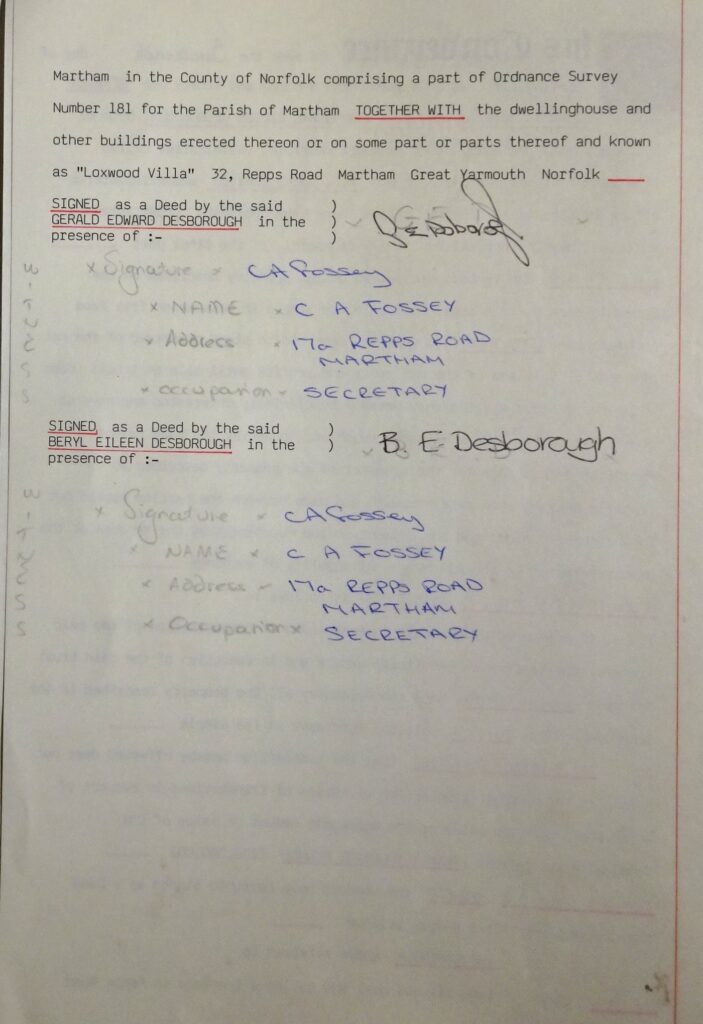 Martham in the County of Norfolk comprising a part of Ordnance Survey
Number 181 for the Parish of Martham TOGETHER WITH the dwellinghouse and
other buildings erected thereon or on some part or parts thereof and known
as "Loxwood Villa" 32, Repps Road Martham Great Yarmouth Norfolk
SIGNED as a Deed by the said )
GERALD EDWARD DESBOROUGH in the )
presence of :- )
G E Desborough
WITNESS
x Signature x CA Fossey
x NAME x C A FOSSEY
x Address x 17a REPPS ROAD
MARTHAM
x occupation x SECRETARY
SIGNED as a Deed by the said )
BERYL EILEEN DESBOROUGH in the )
presence of :-
B. E Desborough
WITNESS
x Signature x CA Fossey
x NAME x C A FOSSEY
x Address x 17a REPPS ROAD
MARTHAM
x Occupation x SECRETARY